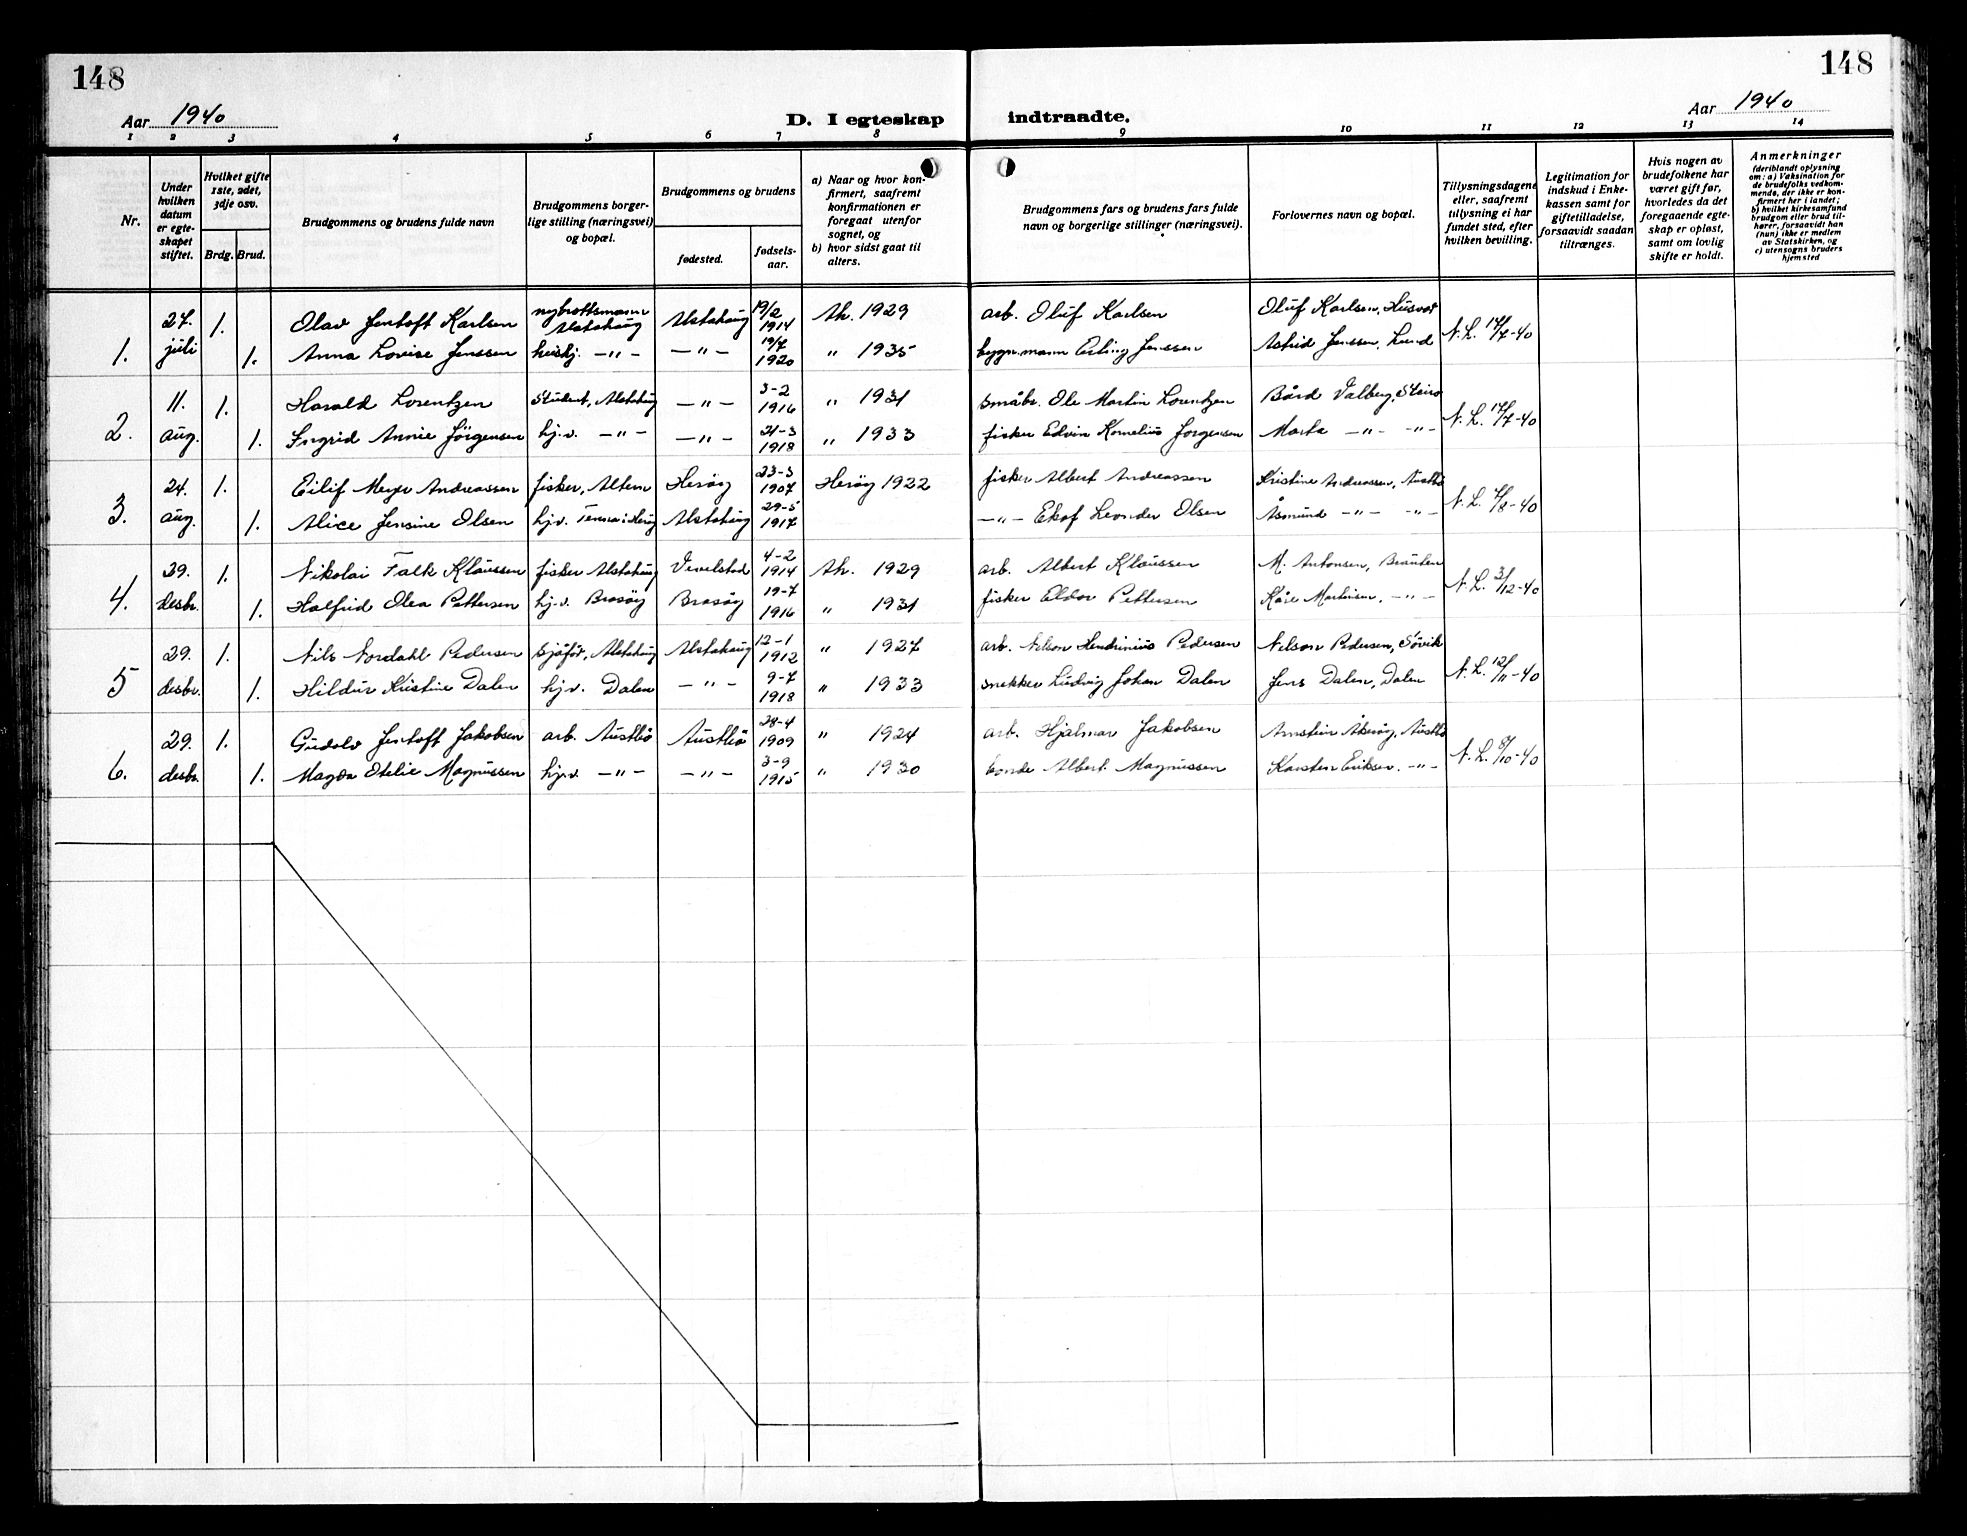 148
148
Aar 1940
D. I egteskap
indtraadte.
Aar 1940
1 2 3 4 5 6 7 8 9 10 11 12 13 14
Nr.
Under hvilken datum er egteskapet stiftet.
Hvilket gifte 1ste, 2det, 3dje osv.
Brdg. Brud.
Brudgommens og brudens fulde navn
Brudgommens borgerlige stilling (næringsvei) og bopæl.
Brudgommens og brudens
fødested.
fødselsaar.
a) Naar og hvor konfirmert, saafremt konfirmationen er foregaat utenfor sognet, og
b) hvor sidst gaat til alters.
Brudgommens fars og brudens fars fulde navn og borgerlige stillinger (næringsvei).
Forlovernes navn og bopæl.
Tillysningsdagene eller, saafremt tillysning ei har fundet sted, efter hvilken bevilling.
Legitimation for indskud i Enkekassen samt for giftetilladelse, forsaavidt saadan tiltrænges.
Hvis nogen av brudefolkene har været gift før, hvorledes da det foregaaende egteskap er opløst, samt om lovlig skifte er holdt.
Anmerkninger (deriblandt oplysning om: a) Vaksination for de brudefolks vedkommende, der ikke er konfirmert her i landet; b) hvilket kirkesamfund brudgom eller brud tilhører, forsaavidt han (hun) ikke er medlem av Statskirken, og c) utensogns bruders hjemsted
1. 27. juli 1. Olav Jentoft Karlsen nybrottsmann Alstahaug Alstahaug 19/2 1914 Ah. 1929 arb. Oluf Karlsen Oluf Karlsen, Husvær N.L. 14/7-40
1. Anna Lovise Jenssen hushj. -"- -"- 19/7 1920 " 1935 bygn.mann Erling Jenssen Astrid Jenssen, Lund
2. 11. aug. 1. Harald Lorentzen Student, Alstahaug -"- 3-2 1916 " 1931 småbr. Ole Martin Lorentzen Bård Valberg, N.L. 17/7-40
1. Ingrid Annie Jörgensen hj.v. -"- -"- 21-3 1918 " 1933 fisker Edvin Kornelius Jorgensen Marta -"- -"-
3. 24. aug. 1. Eilif Meyer Andreassen fisker, Altern Heröy 23-3 1907 Heröy 1922 fisker Albert Andreassen Kristine Andreassen, Austbö N.L. 4/8-40
1. Alice Jensine Olsen hj.v. Tenna i Heröy Alstahaug 29-5 1917 -"- Leonder Olsen Åsmund -"- -"-
4. 29. desbr. 1. Nikolai Falk Klaussen fisker Alstahaug Vevelstad 4-2 1914 Ah. 1929 arb. Albert Klaussen M. Antonsen, N.L. 3/12-40
1. Halfrid Olea Pettersen hj.v. Brasöy Brasöy 19-7 1916 " 1931 fisker Eldor Pettersen Kåre Martinsen, -"-
5 29. desbr. 1. Nils Nordahl Pedersen sjåför, Alstahaug Alstahaug 12-1 1912 " 1927 arb. Nelson Hendrinius Pedersen Nelson Pedersen, Søvik N.L. 12/11-40
1. Hildur Kristine Dalen hj.v. Dalen -"- 9-7 1918 " 1933 snekker Ludvig Johan Dalen Jens Dalen, Dalen
6. 29. desbr. 1. Gudolv Jentoft Jakobsen arb. Austbö Austbö 28-4 1909 " 1924 arb. Hjalmar Jakobsen Arnstein Åkerøy, Austbö N.L. 8/10-40
1. Magda Otelie Magnussen hj.v. -"- -"- 3-9 1915 " 1930 bonde Albert Magnussen Karsten Eriksen. -"-